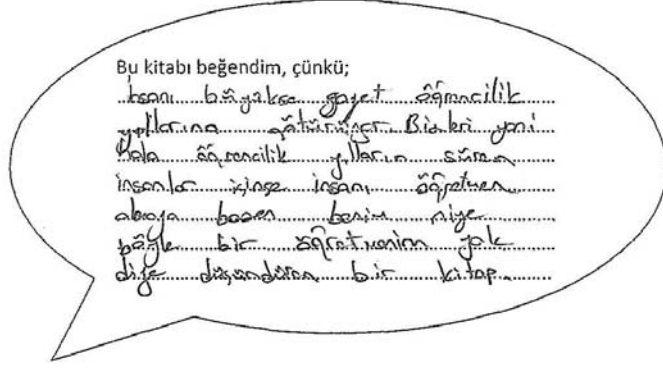 Bu kitabı beğendim, çünkü;
insanı büyükse gayet öğrencilik
yıllarına götürüyor. Bizleri yani
hala öğrencilik yılların süren
insanlar içinse insanı öğretmen
bazen benim niye
böyle bir öğretmenim yok
diye düşündüren bir kitap.